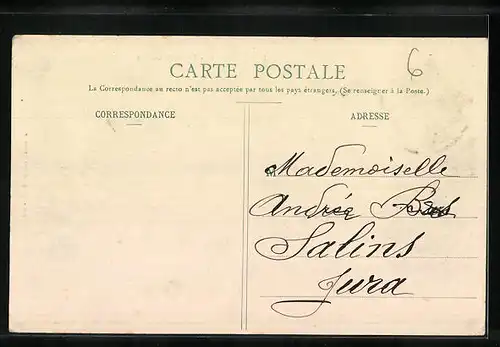 6
CARTE POSTALE
La Correspondance au recto n'est pas acceptée par tous les pays étrangers. (Se renseigner à la Poste.)
CORRESPONDANCE
ADRESSE
Mademoiselle
Andrée
Salins
Jura